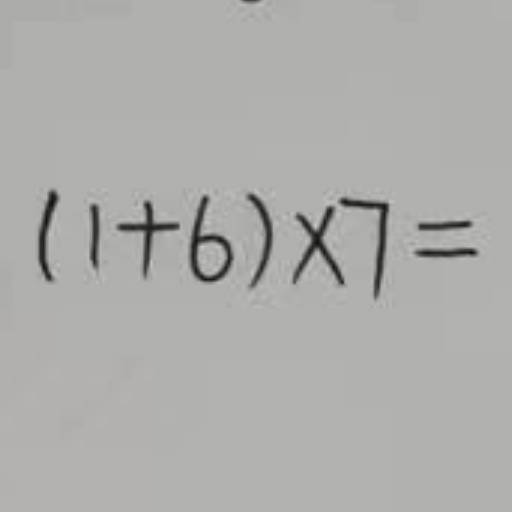 (1+6)×7=